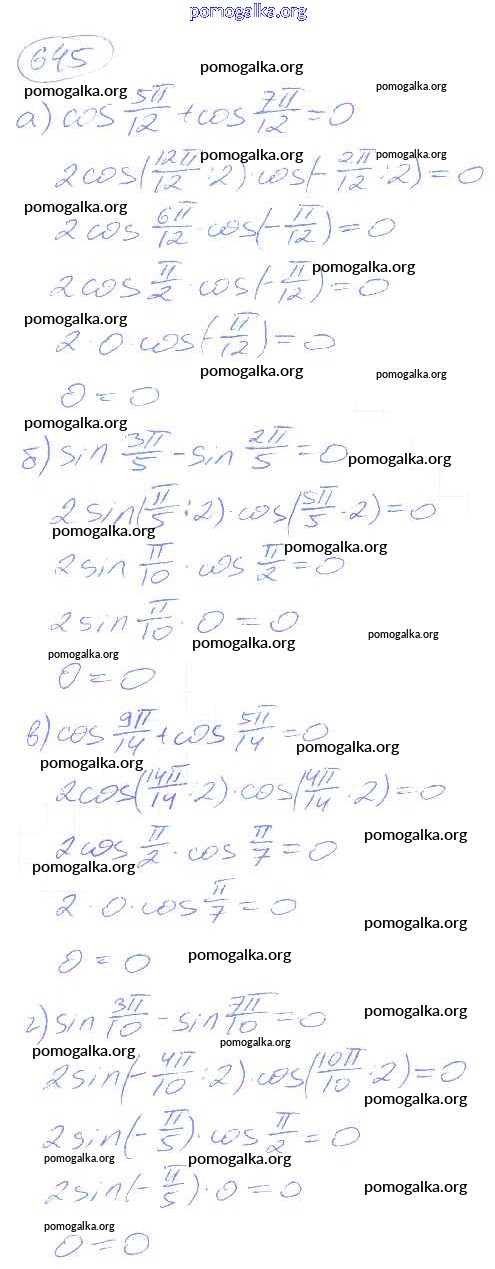 pomogalka.org
645
pomogalka.org
pomogalka.org pomogalka.org
а) cos 5π/12 + cos 7π/12 = 0
pomogalka.org pomogalka.org
2cos(12π/12 : 2) · cos(- 2π/12 : 2) = 0
pomogalka.org
2cos 6π/12 · cos(- π/12) = 0
pomogalka.org
2cos π/2 · cos(- π/12) = 0
pomogalka.org
2 · 0 · cos(- π/12) = 0
pomogalka.org pomogalka.org
0 = 0
pomogalka.org
б) sin 3π/5 - sin 2π/5 = 0
pomogalka.org
2 sin(π/5 : 2) · cos(5π/5 · 2) = 0
pomogalka.org
pomogalka.org
2 sin π/10 · cos π/2 = 0
2 sin π/10 · 0 = 0
pomogalka.org pomogalka.org
pomogalka.org
0 = 0
в) cos 9π/14 + cos 5π/14 = 0
pomogalka.org
pomogalka.org
2cos(14π/14 · 2) · cos(14π/14 · 2) = 0
pomogalka.org
2cos π/2 · cos π/7 = 0
pomogalka.org
2 · 0 · cos π/7 = 0
pomogalka.org
0 = 0
pomogalka.org
г) sin 3π/10 - sin 7π/10 = 0
pomogalka.org
pomogalka.org pomogalka.org
2sin(- 4π/10 : 2) · cos(10π/10 : 2) = 0
pomogalka.org
2sin(- π/5) · cos π/2 = 0
pomogalka.org pomogalka.org
2sin(- π/5) · 0 = 0
pomogalka.org
pomogalka.org
0 = 0